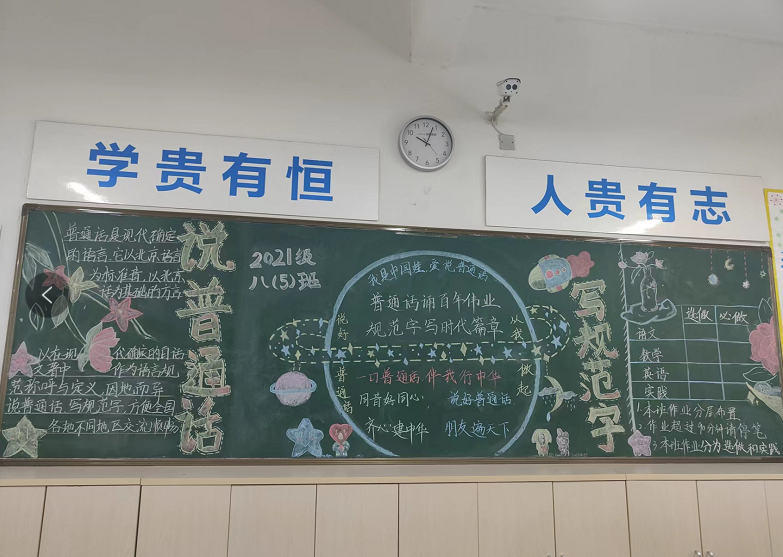 学贵有恒
人贵有志
普通话是现代确定
的语言,它以北京语言
为标准音,以北方
话为基础的方言
以在现代确的白话
文著中作为语法规
范称呼与定义,因地而异
说普通话,写规范字,方便全国
各地不同地区交流顺畅
说普通话
2021级
八(5)班
我是中国娃,爱说普通话
普通话诵百年伟业
规范字写时代篇章
一口普通话伴我行中华
同音好同心,说好普通话
齐心建中华 朋友遍天下
说好普通话
从我做起
写规范字
选做 必做
语文
数学
英语
实践
1.本班作业分层布置
2.作业超过90分钟请停笔
3.本班作业分为选做和实践